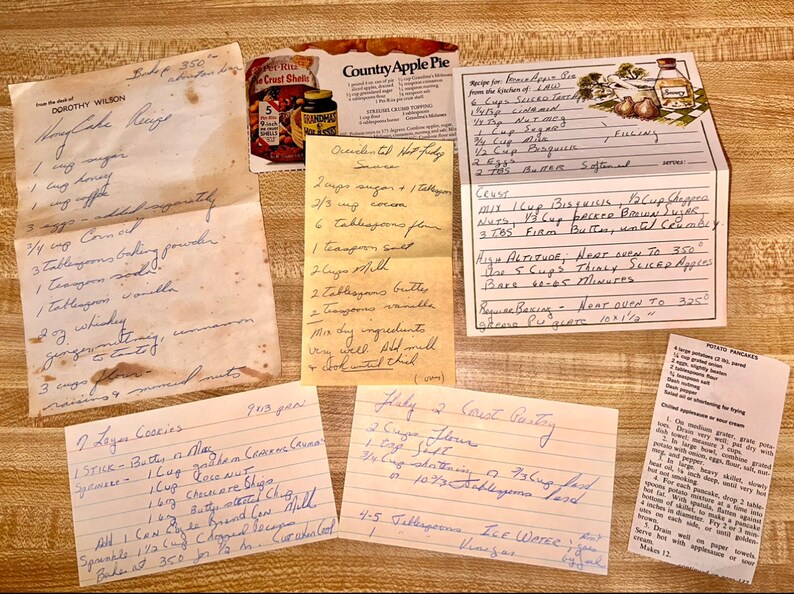 Bake @ 350°
about an hour
from the desk of
DOROTHY WILSON
Honey Cake Recipe
1 cup sugar
1 cup honey
1 cup coffee
3 eggs - added separately
3/4 cup Corn oil
3 Tablespoons baking powder
1 teaspoon soda
1 tablespoon vanilla
2 oz whiskey
ginger, nutmeg, cinnamon
to taste
3 cups flour
raisins & minced nuts
Pet-Ritz
Pie Crust Shells
5
Pet-Ritz
9-inch
PIE CRUST
SHELLS
GRANDMA'S
MOLASSES
Country Apple Pie
STREUSEL CRUMB TOPPING
Occidental Hot Fudge
Sauce
2 cups sugar + 1 tablespoon
2/3 cup cocoa
6 tablespoons flour
1 teaspoon salt
2 cups Milk
2 Tablespoons butter
2 Teaspoons vanilla
Mix dry ingredients
very well. Add milk
& cook until thick
(over)
Recipe for: Apple Pie
from the kitchen of: LAW
6 Cups Sliced Tart
1 1/4 Tsp Cinnamon
1/4 Tsp Nutmeg
1 Cup Sugar
3/4 Cup Milk
1/2 Cup Bisquick, Filling
2 Eggs
2 TBS Butter Softened serves:
Savory
Crust
Mix 1 Cup Bisquick, 1/2 Cup Chopped
Nuts, 1/3 Cup Packed Brown Sugar
3 TBS Firm Butter, until Crumbly
High Altitude, Heat oven to 350°
Use 5 Cups Thinly Sliced Apples
Bake 60-65 Minutes
Regular Baking - Heat oven to 325°
grease plate 10x1 1/2"
7 Layer Cookies 9x13 pan
1 Stick - Butter or Marg
Sprinkle - 1 Cup graham Cracking Crumbs
1 Cup Coconut
1 6oz Chocolate Chips
1 6oz Butterscotch Chips
Add 1 Can Eagle Brand Con Milk
Sprinkle 1 1/2 Cup Chopped Pecans
Bake at 350 for 1/2 hr. Cut When Cool
Flaky 2 Crust Pastry
2 Cups flour
1 tsp Salt
3/4 Cup shortening or 2/3 Cup lard
or 10 2/3 Tablespoons lard
4-5 Tablespoons ICE WATER;
1 Vinegar
POTATO PANCAKES
4 large potatoes (2 lb), pared
1/4 cup grated onion
2 eggs, slightly beaten
2 tablespoons flour
3/4 teaspoon salt
Dash nutmeg
Dash pepper
Salad oil or shortening for frying
Chilled applesauce or sour cream
1. On medium grater, grate pota-
toes. Drain very well; pat dry with
dish towel; measure 3 cups.
2. In large bowl, combine grated
potato with onion, eggs, flour, salt, nut-
meg, and pepper.
3. In large, heavy skillet, slowly
heat oil, 1/4 inch deep, until very hot
but not smoking.
4. For each pancake, drop 2 table-
spoons potato mixture at a time into
hot fat. With spatula, flatten against
bottom of skillet, to make a pancake
4 inches in diameter. Fry 2 or 3 min-
utes on each side, or until golden-
brown.
5. Drain well on paper towels.
Serve hot with applesauce or sour
cream.
Makes 12.